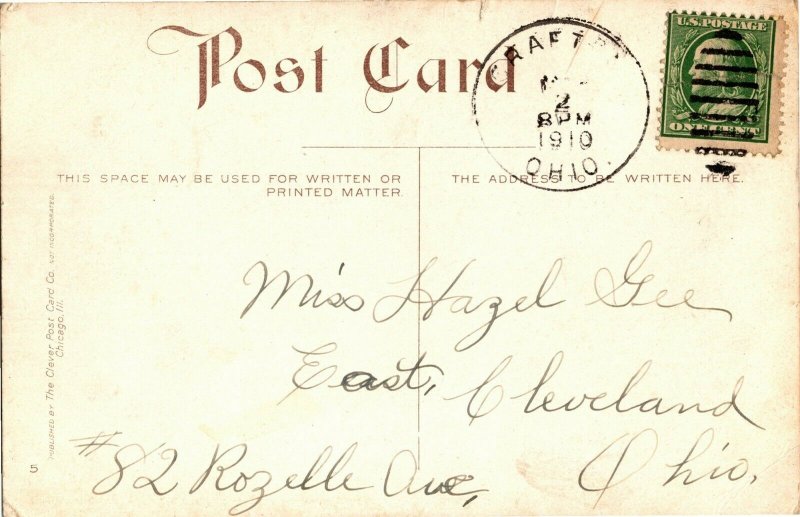 Post Card
U.S. POSTAGE
ONE CENT
2
8 PM
1910
OHIO
THIS SPACE MAY BE USED FOR WRITTEN OR
PRINTED MATTER.
THE ADDRESS TO BE WRITTEN HERE.
PUBLISHED BY The Clever Post Card Co. NOT INCORPORATED.
Chicago, Ill.
Miss Hazel Gee
East, Cleveland
#82 Rozelle Ave, Ohio.
5